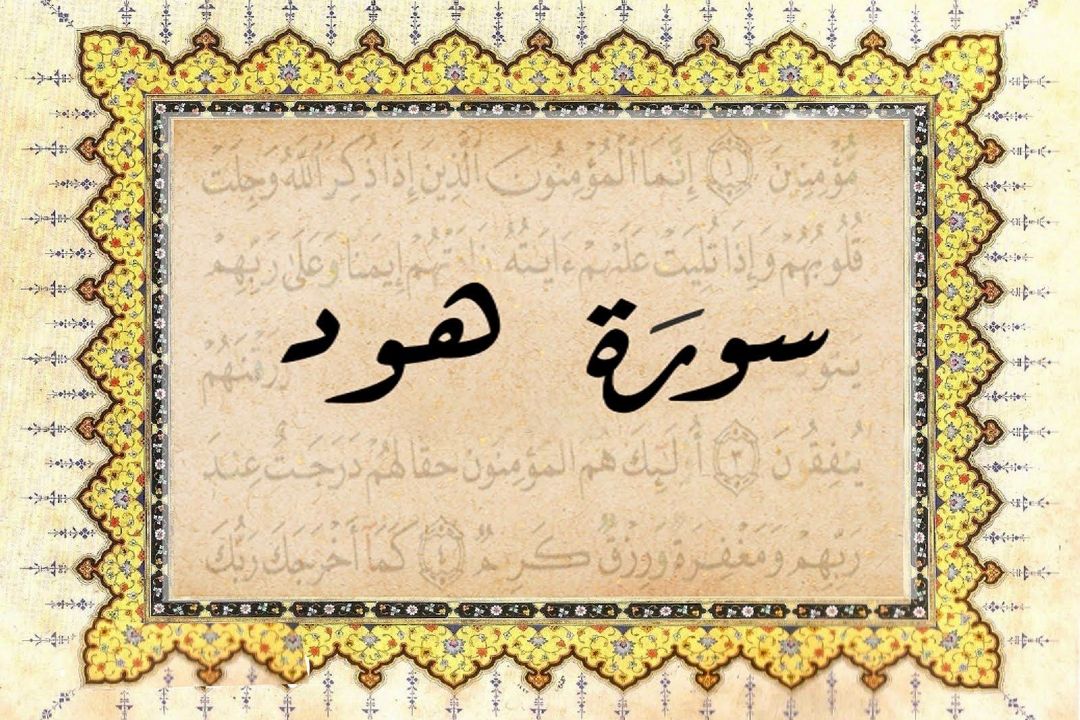 مُؤْمِنِينَ ١ إِنَّمَا ٱلْمُؤْمِنُونَ ٱلَّذِينَ إِذَا ذُكِرَ ٱللَّهُ وَجِلَتْ
قُلُوبُهُمْ وَإِذَا تُلِيَتْ عَلَيْهِمْ ءَايَٰتُهُۥ زَادَتْهُمْ إِيمَٰنًا وَعَلَىٰ رَبِّهِمْ
سورَة هود
يُنفِقُونَ ٣ أُو۟لَٰٓئِكَ هُمُ ٱلْمُؤْمِنُونَ حَقًّا لَّهُمْ دَرَجَٰتٌ عِندَ
رَبِّهِمْ وَمَغْفِرَةٌ وَرِزْقٌ كَرِيمٌ ٤ كَمَآ أَخْرَجَكَ رَبُّكَ